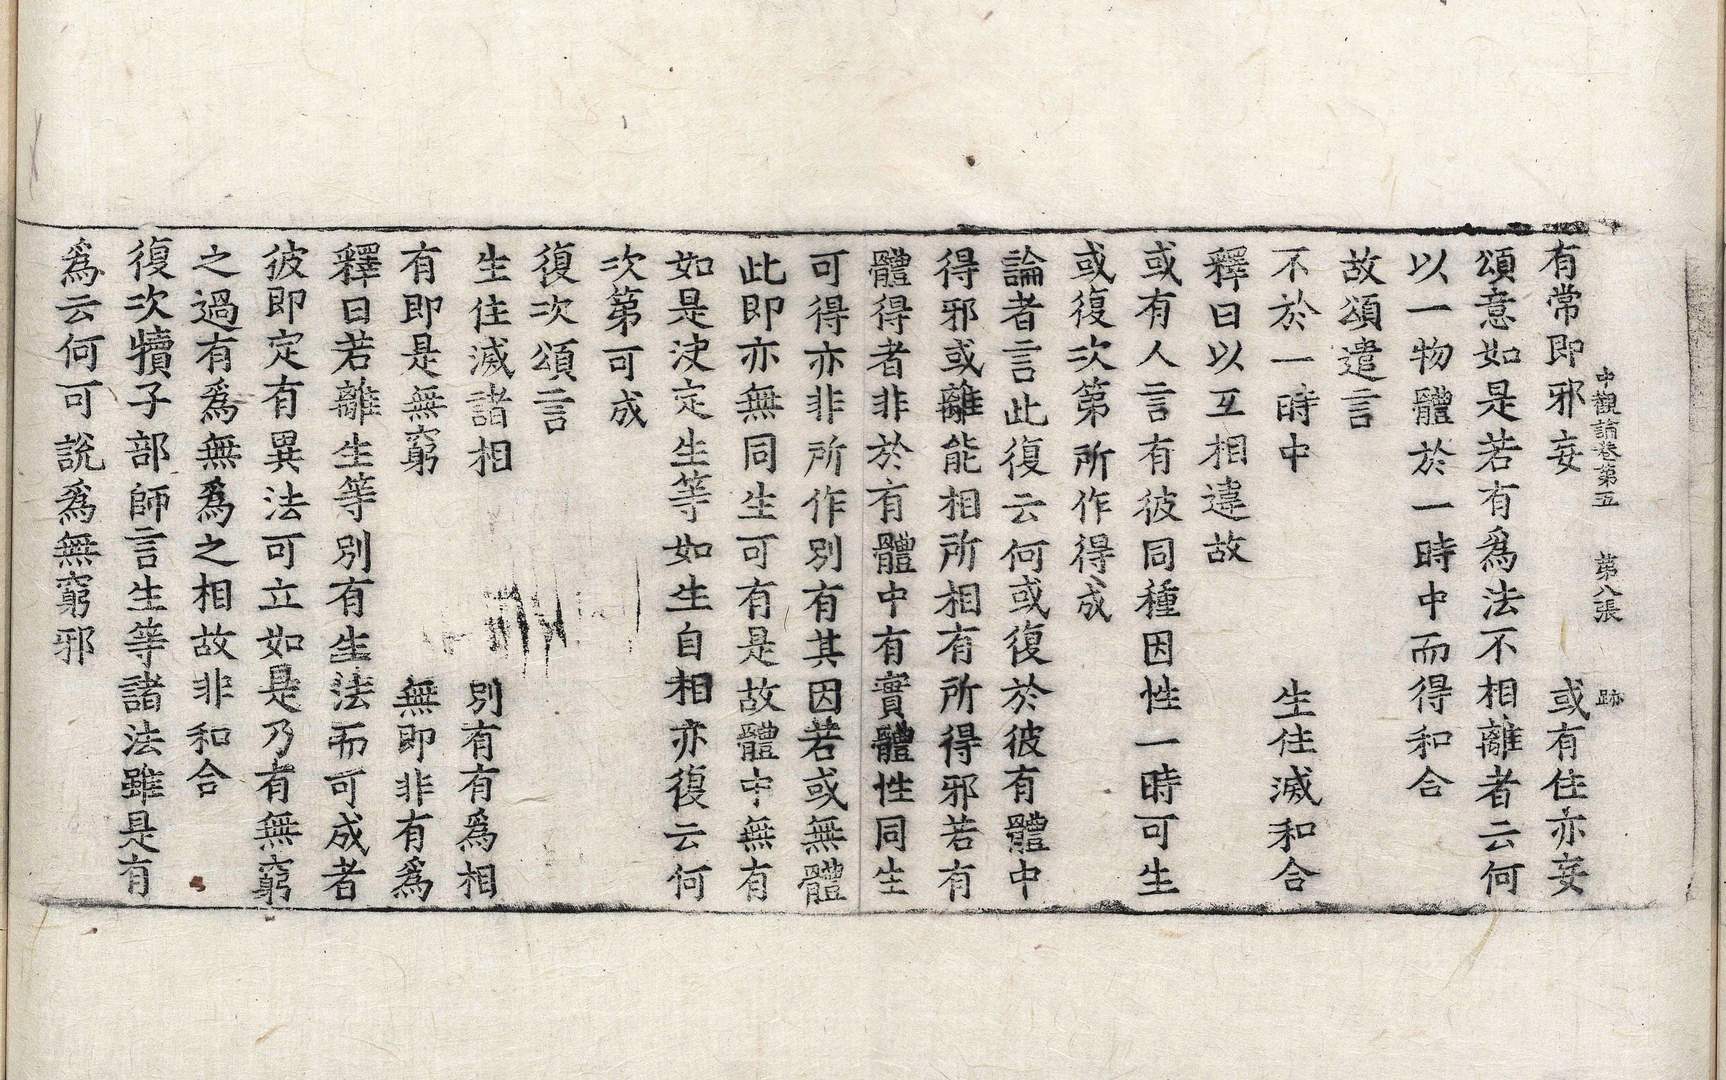 中觀論卷第五　第八張　跡
有常即邪妄　或有住亦妄
頌意如是若有爲法不相離者云何
以一物體於一時中而得和合
故頌遣言
不於一時中　生住滅和合
釋曰以互相違故
或有人言有彼同種因性一時可生
或復次第所作得成
論者言此復云何或復於彼有體中
得邪或離能相所相有所得邪若有
體得者非於有體中有實體性同生
可得亦非所作別有其因若或無體
此即亦無同生可有是故體中無有
如是決定生等如生自相亦復云何
次第可成
復次頌言
生住滅諸相　別有有爲相
有即是無窮　無即非有爲
釋曰若離生等別有生法而可成者
彼即定有異法可立如是乃有無窮
之過有爲無爲之相故非和合
復次犢子部師言生等諸法雖是有
爲云何可說爲無窮邪